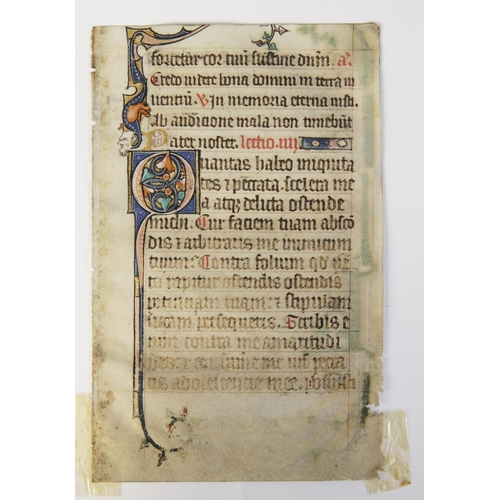 fortetur cor tuū sustine dnm̄. a.
Credo videre bona domini in terra vi
uentiū. V In memoria eterna iust.
Ab audicione mala non timebūt
Pater noster. lectio. iiij
Quantas habeo iniquita
tes ⁊ peccata. scelera me
a atqȝ delicta ostende
michi. Cur faciem tuam absco
dis ⁊ arbitraris me inimicum
tuum: Contra folium qd ue
to rapitur ostendis
siccam persequeris. Scribis e
nim contra me amaritudi
me peca
tis adolescencie mee. Posuisti